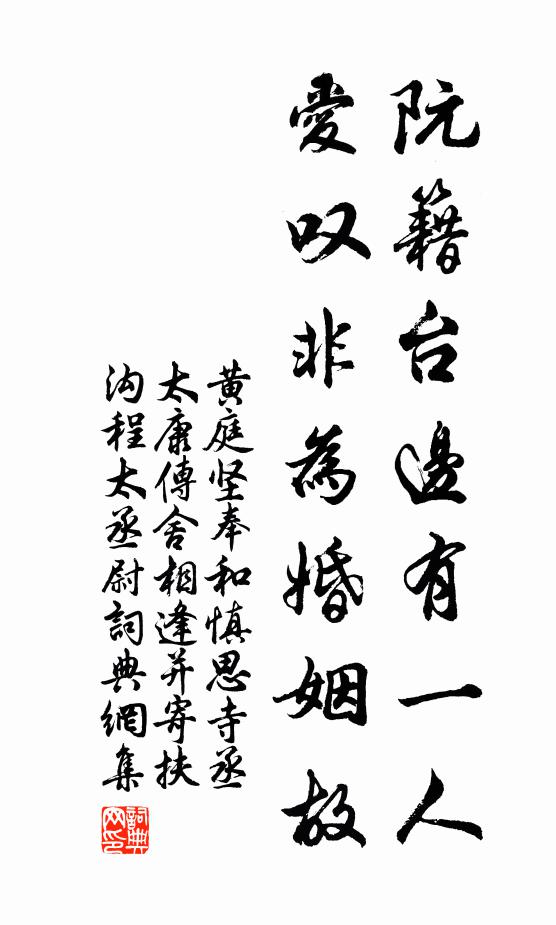 阮籍台邊有一人
愛叹非為婚姻故
黄庭坚奉和慎思寺丞
太康傳舍相逢并寄扶
沟程太丞尉詞典網集
詞典网印